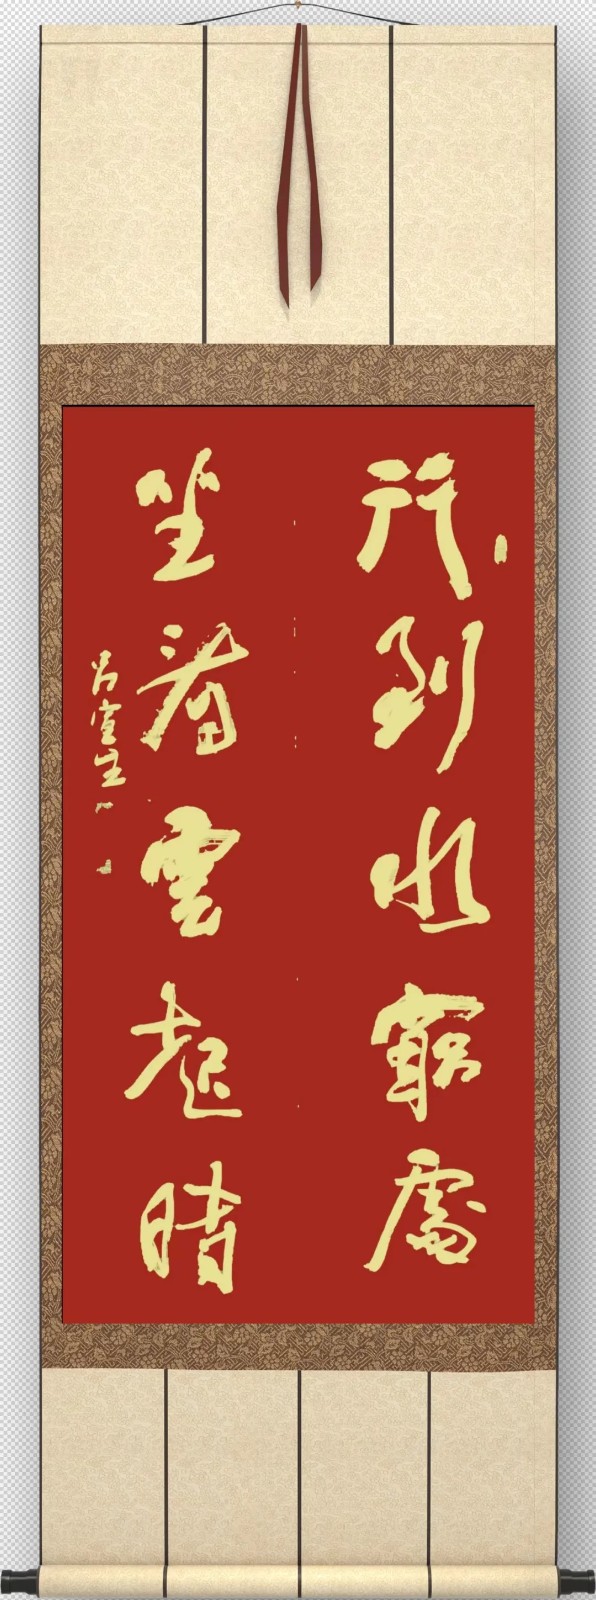 行到水窮處
坐看雲起晴